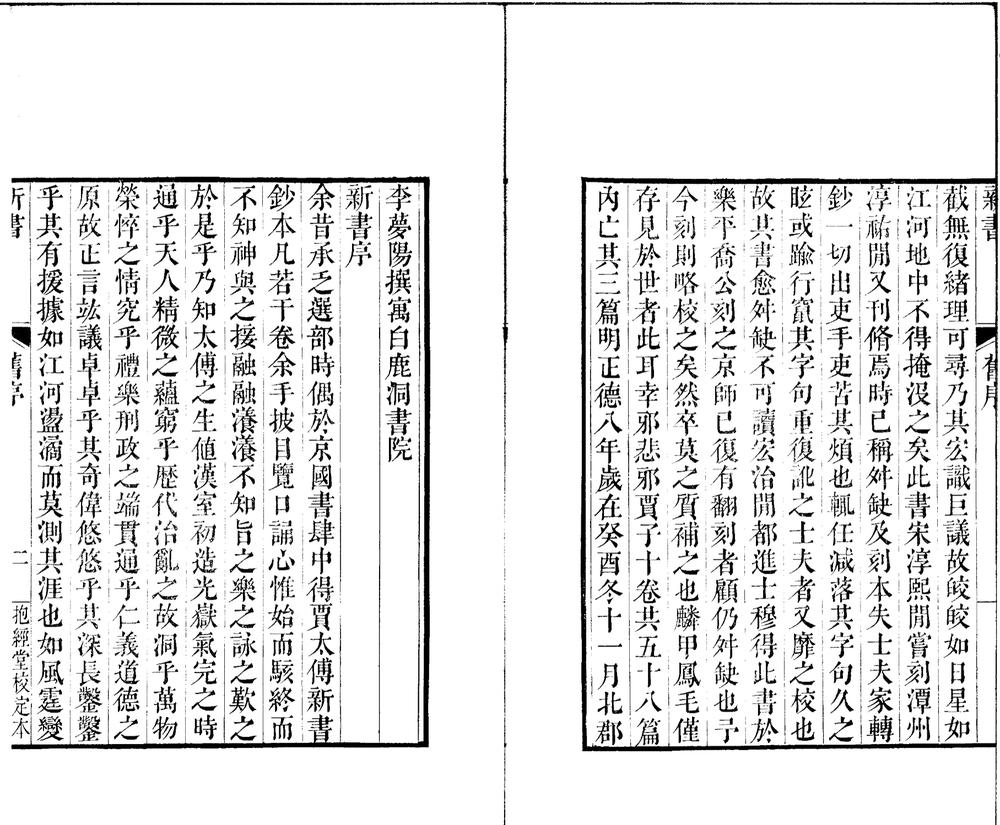 新書
舊序
截無復緒理可尋乃其宏識巨議故皎皎如日星如
江河地中不得掩沒之矣此書宋淳熙閒嘗刻潭州
淳祐閒又刊脩焉時已稱舛缺及刻本失士夫家轉
鈔一切出吏手吏苦其煩也輒任減落其字句久之
眩或踰行竄其字句重復訛之士夫者又靡之校也
故其書愈舛缺不可讀宏治閒都進士穆得此書於
樂平喬公刻之京師已復有翻刻者顧仍舛缺也予
今刻則略校之矣然卒莫之質補之也麟甲鳳毛僅
存見於世者此耳幸邪悲邪賈子十卷共五十八篇
內亡其三篇明正德八年歲在癸酉冬十一月北郡
李夢陽撰寓白鹿洞書院
新書序
余昔承乏選部時偶於京國書肆中得賈太傅新書
鈔本凡若干卷余手披目覽口誦心惟始而駭終而
不知神與之接融融瀁瀁不知旨之樂之詠之歎之
於是乎乃知太傅之生値漢室初造光嶽氣完之時
通乎天人精微之蘊窮乎歷代治亂之故洞乎萬物
榮悴之情究乎禮樂刑政之端貫通乎仁義道德之
原故正言竑議卓卓乎其奇偉悠悠乎其深長鑿鑿
乎其有援據如江河盪潏而莫測其涯也如風霆變
新書
舊序
二
抱經堂校定本